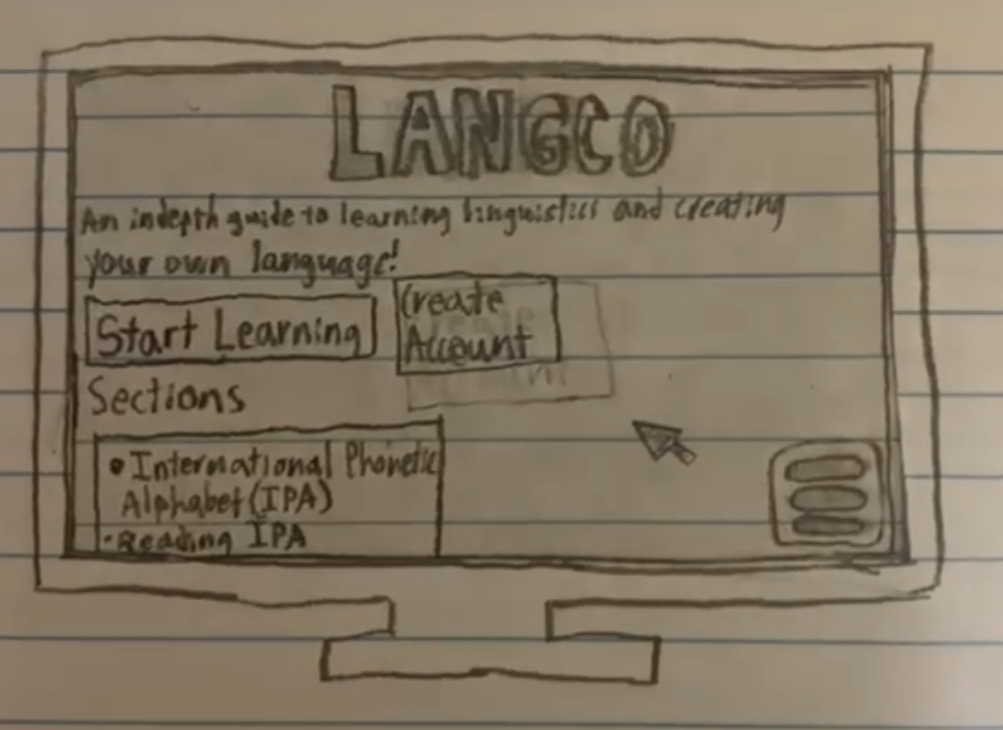 LANGCO
An indepth guide to learning linguistics and creating
your own language!
Start Learning
Create
Account
Sections
• International Phonetic
Alphabet (IPA)
• Reading IPA